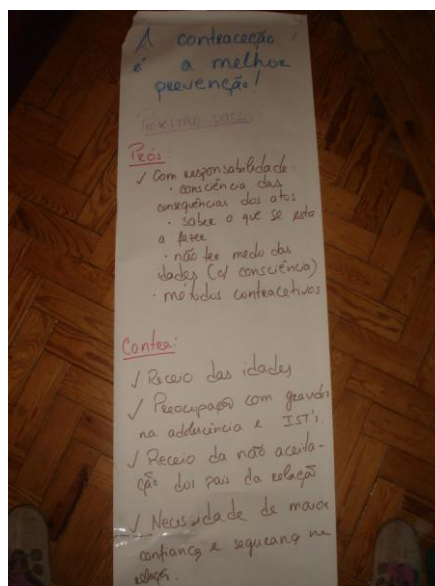 A contraceção
é a melhor
prevenção!
Próximo passo:
Prós:
✓ Com responsabilidade
• consciência das
consequências dos atos
• saber o que se está
a fazer
• não ter medo das
idades (c/ consciência)
• métodos contracetivos
Contra:
✓ Receio das idades
✓ Preocupação com gravidez
na adolescência e IST's.
✓ Receio da não aceita-
ção dos pais da relação
✓ Necessidade de maior
confiança e segurança na
relação.